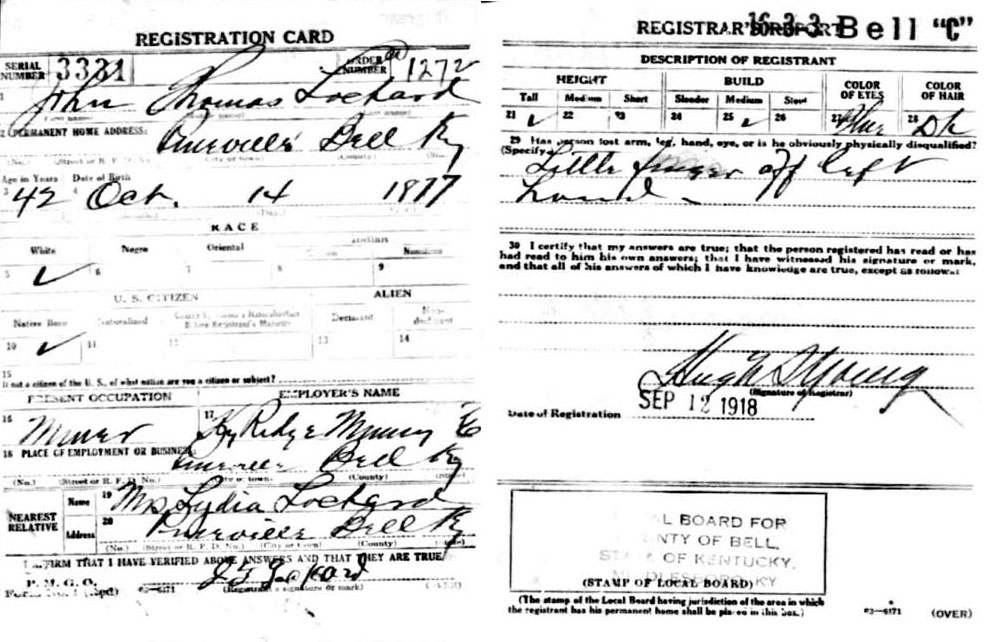 REGISTRATION CARD
SERIAL NUMBER 3331
ORDER NUMBER 1272
1 John Thomas Lockard
2 PERMANENT HOME ADDRESS:
Pineville Bell Ky
(No.) (Street or R. F. D. No.) (City or town) (County) (State)
Age in Years Date of Birth
3 42 4 Oct. 14 1877
RACE
White Negro Oriental Indian
5 ✓ 6 7 8 9
U. S. CITIZEN ALIEN
Native Born Naturalized Declarant Non-declarant
10 ✓ 11 12 13 14
15
If not a citizen of the U. S., of what nation are you a citizen or subject?
PRESENT OCCUPATION EMPLOYER'S NAME
16 Miner 17 Ky Ridge Mining Co
18 PLACE OF EMPLOYMENT OR BUSINESS:
Pineville Bell Ky
(No.) (Street or R. F. D. No.) (City or town) (County) (State)
NEAREST RELATIVE
Name 19 Mrs Lydia Lockard
Address 20 Pineville Bell Ky
(No.) (Street or R. F. D. No.) (City or town) (County) (State)
I AFFIRM THAT I HAVE VERIFIED ABOVE ANSWERS AND THAT THEY ARE TRUE
P. M. G. O.
Form No. 1 (Red) 03—6171 (Registrant's signature or mark) (OVER)
J T Lockard
REGISTRAR'S REPORT
16-3-3 Bell "C"
DESCRIPTION OF REGISTRANT
HEIGHT BUILD COLOR OF EYES COLOR OF HAIR
Tall Medium Short Slender Medium Stout
21 ✓ 22 23 24 25 ✓ 26 27 Blue 28 Dk
29 Has person lost arm, leg, hand, eye, or is he obviously physically disqualified?
(Specify.)
Little finger off left
hand
30 I certify that my answers are true; that the person registered has read or has
had read to him his own answers; that I have witnessed his signature or mark,
and that all of his answers of which I have knowledge are true, except as follows:
Hugh Young
(Signature of Registrar)
Date of Registration SEP 12 1918
LOCAL BOARD FOR
COUNTY OF BELL,
STATE OF KENTUCKY,
MIDDLESBORO, KY
(STAMP OF LOCAL BOARD)
(The stamp of the Local Board having jurisdiction of the area in which
the registrant has his permanent home shall be placed in this box.)
03—6171 (OVER)